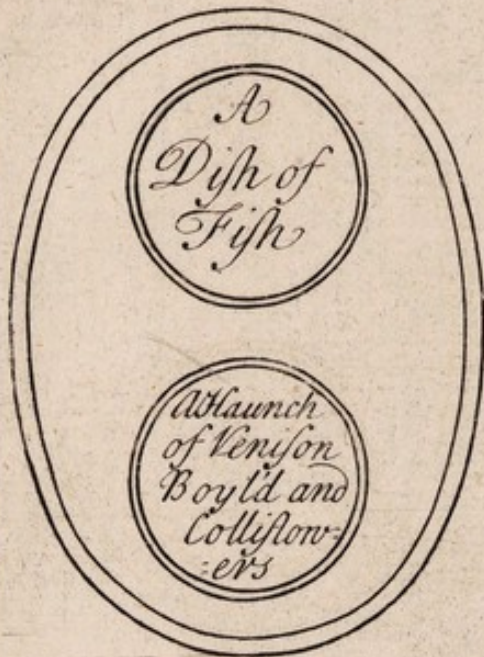 A
Diſh of
Fiſh
A Haunch
of Veniſon
Boyl'd and
Colliflow=
=ers